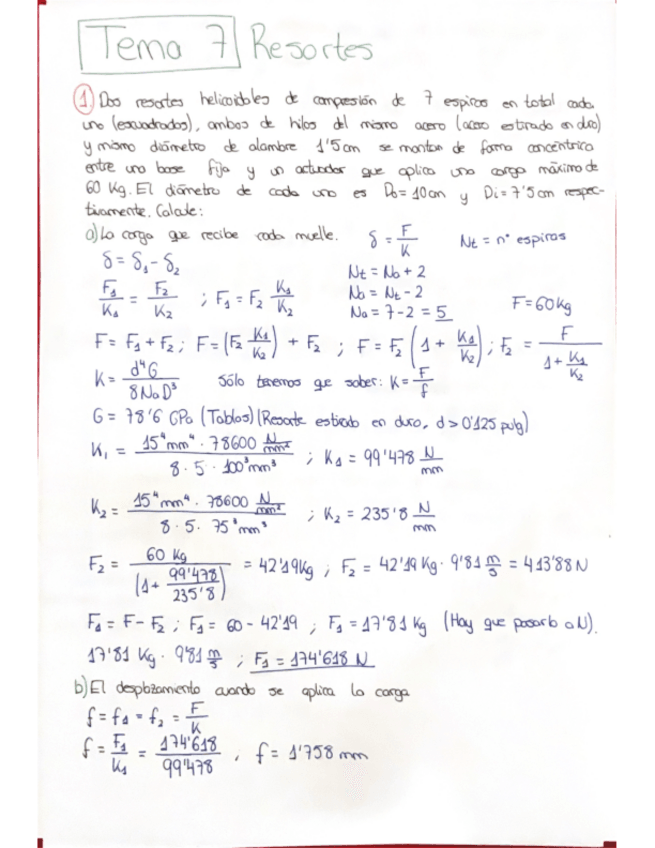 Tema 7 Resortes
1. Dos resortes helicoidales de compresión de 7 espiras en total cada
uno (escuadrados), ambos de hilos del mismo acero (acero estirado en duro)
y mismo diámetro de alambre 1'5cm se montan de forma concéntrica
entre una base fija y un actuador que aplica una carga máxima de
60 Kg. El diámetro de cada uno es Do=10cm y Di=7'5cm respec-
tivamente. Calcule:
a) La carga que recibe cada muelle. δ = F/K Nt = nº espiras
δ = δ1 - δ2
Nt = Na + 2
F1/K1 = F2/K2 ; F1 = F2 K1/K2
Na = Nt - 2
Na = 7 - 2 = 5
F = 60kg
F = F1 + F2 ; F = (F2 K1/K2) + F2 ; F = F2 (1 + K1/K2) ; F2 = F/(1 + K1/K2)
K = d⁴G/8NaD³ Sólo tenemos que saber: K = F/f
G = 78'6 GPa (Tablas) (Resorte estirado en duro, d > 0'125 pulg)
K1 = 15⁴mm⁴ · 78600 N/mm² / 8 · 5 · 100³mm³ ; K1 = 99'478 N/mm
K2 = 15⁴mm⁴ · 78600 N/mm² / 8 · 5 · 75³mm³ ; K2 = 235'8 N/mm
F2 = 60 Kg / (1 + 99'478/235'8) = 42'19Kg ; F2 = 42'19 Kg · 9'81 m/s = 413'88N
F1 = F - F2 ; F1 = 60 - 42'19 ; F1 = 17'81 Kg (Hay que pasarlo a N).
17'81 Kg · 9'81 m/s ; F1 = 174'618 N
b) El desplazamiento cuando se aplica la carga
f = f1 = f2 = F/K
f = F1/K1 = 174'618/99'478 , f = 1'758 mm